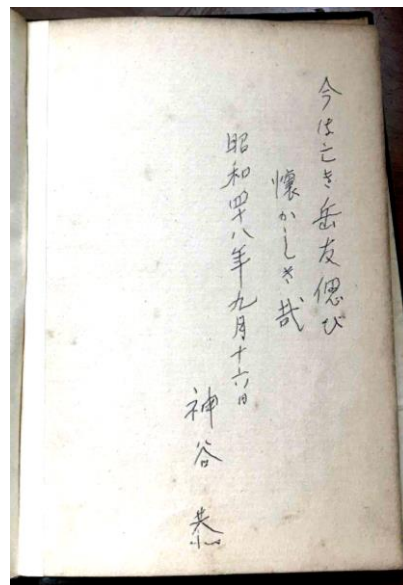 今は亡き岳友偲び
懐かしき哉
昭和四十八年九月十六日
神谷 恭